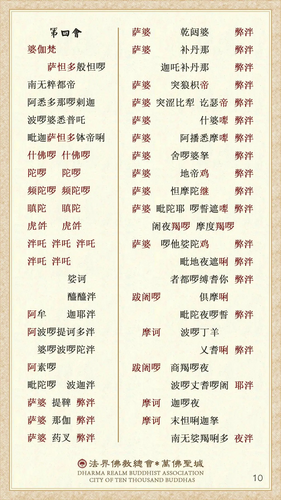 第四會
婆伽梵
萨怛多般怛啰
南无粹都帝
阿悉多那啰剌迦
波啰婆悉普吒
毗迦萨怛多钵帝唎
什佛啰 什佛啰
陀啰 陀啰
频陀啰 频陀啰
瞋陀 瞋陀
虎𤙖 虎𤙖
泮吒 泮吒 泮吒
泮吒 泮吒
娑诃
醯醯泮
阿牟 迦耶泮
阿波啰提诃多泮
婆啰波啰陀泮
阿素啰
毗陀啰 波迦泮
萨婆 提鞞 弊泮
萨婆 那伽 弊泮
萨婆 药叉 弊泮
萨婆 乾闼婆 弊泮
萨婆 补丹那 弊泮
迦吒补丹那 弊泮
萨婆 突狼枳帝 弊泮
萨婆 突涩比犁 讫瑟帝 弊泮
萨婆 什婆嚟 弊泮
萨婆 阿播悉摩嚟 弊泮
萨婆 舍啰婆拏 弊泮
萨婆 地帝鸡 弊泮
萨婆 怛摩陀继 弊泮
萨婆 毗陀耶 啰誓遮嚟 弊泮
阇夜羯啰 摩度羯啰
萨婆 啰他娑陀鸡 弊泮
毗地夜遮唎 弊泮
者都啰缚耆你 弊泮
跋阇啰 俱摩唎
毗陀夜啰誓 弊泮
摩诃 波啰丁羊
乂耆唎 弊泮
跋阇啰 商羯啰夜
波啰丈耆啰阇 耶泮
摩诃 迦啰夜
摩诃 末怛唎迦拏
南无娑羯唎多 夜泮
法界佛教總會・萬佛聖城
DHARMA REALM BUDDHIST ASSOCIATION
CITY OF TEN THOUSAND BUDDHAS
10